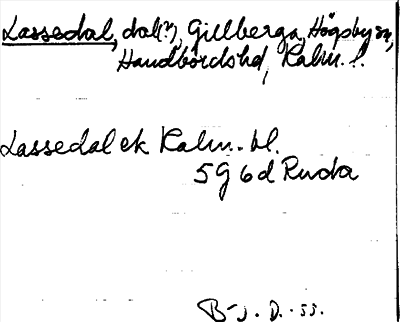 Lassedal, dal(?), Gillberga, Högsby sn,
Handbörds hd, Kalm. l.
Lassedal ek Kalm. bl.
5G 6d Ruda
B-J. D. -55.